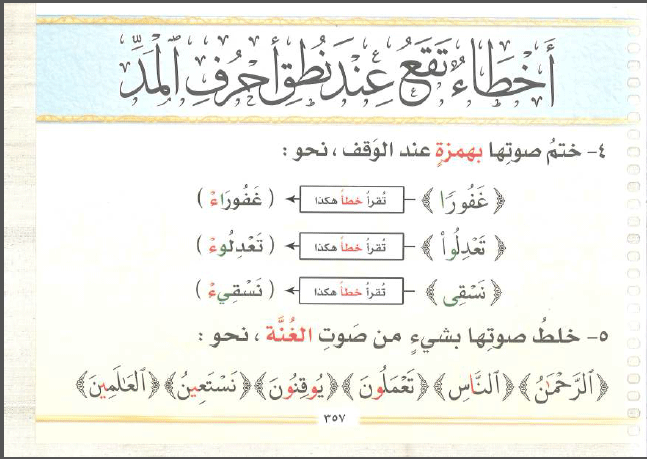 أَخْطَاءٌ تَقَعُ عِنْدَ نُطْقِ أَحْرُفِ الْمَدِّ
٤- ختمُ صوتِها بهمزةٍ عند الوَقف ، نحو :
﴿ غَفُورَا ﴾ تُقرأُ خطأً هكذا ( غَفُورَاءْ )
﴿ تَعْدِلُواْ ﴾ تُقرأُ خطأً هكذا ( تَعْدِلُوءْ )
﴿ نَسْقِى ﴾ تُقرأُ خطأً هكذا ( نَسْقِيءْ )
٥- خلطُ صوتِها بشيءٍ من صَوتِ الغُنَّة ، نحو :
﴿ٱلرَّحْمَٰنُ﴾ ﴿ٱلنَّاسِ﴾ ﴿تَعْمَلُونَ﴾ ﴿يُوقِنُونَ﴾ ﴿نَسْتَعِينُ﴾ ﴿ٱلْعَٰلَمِينَ﴾
٣٥٧